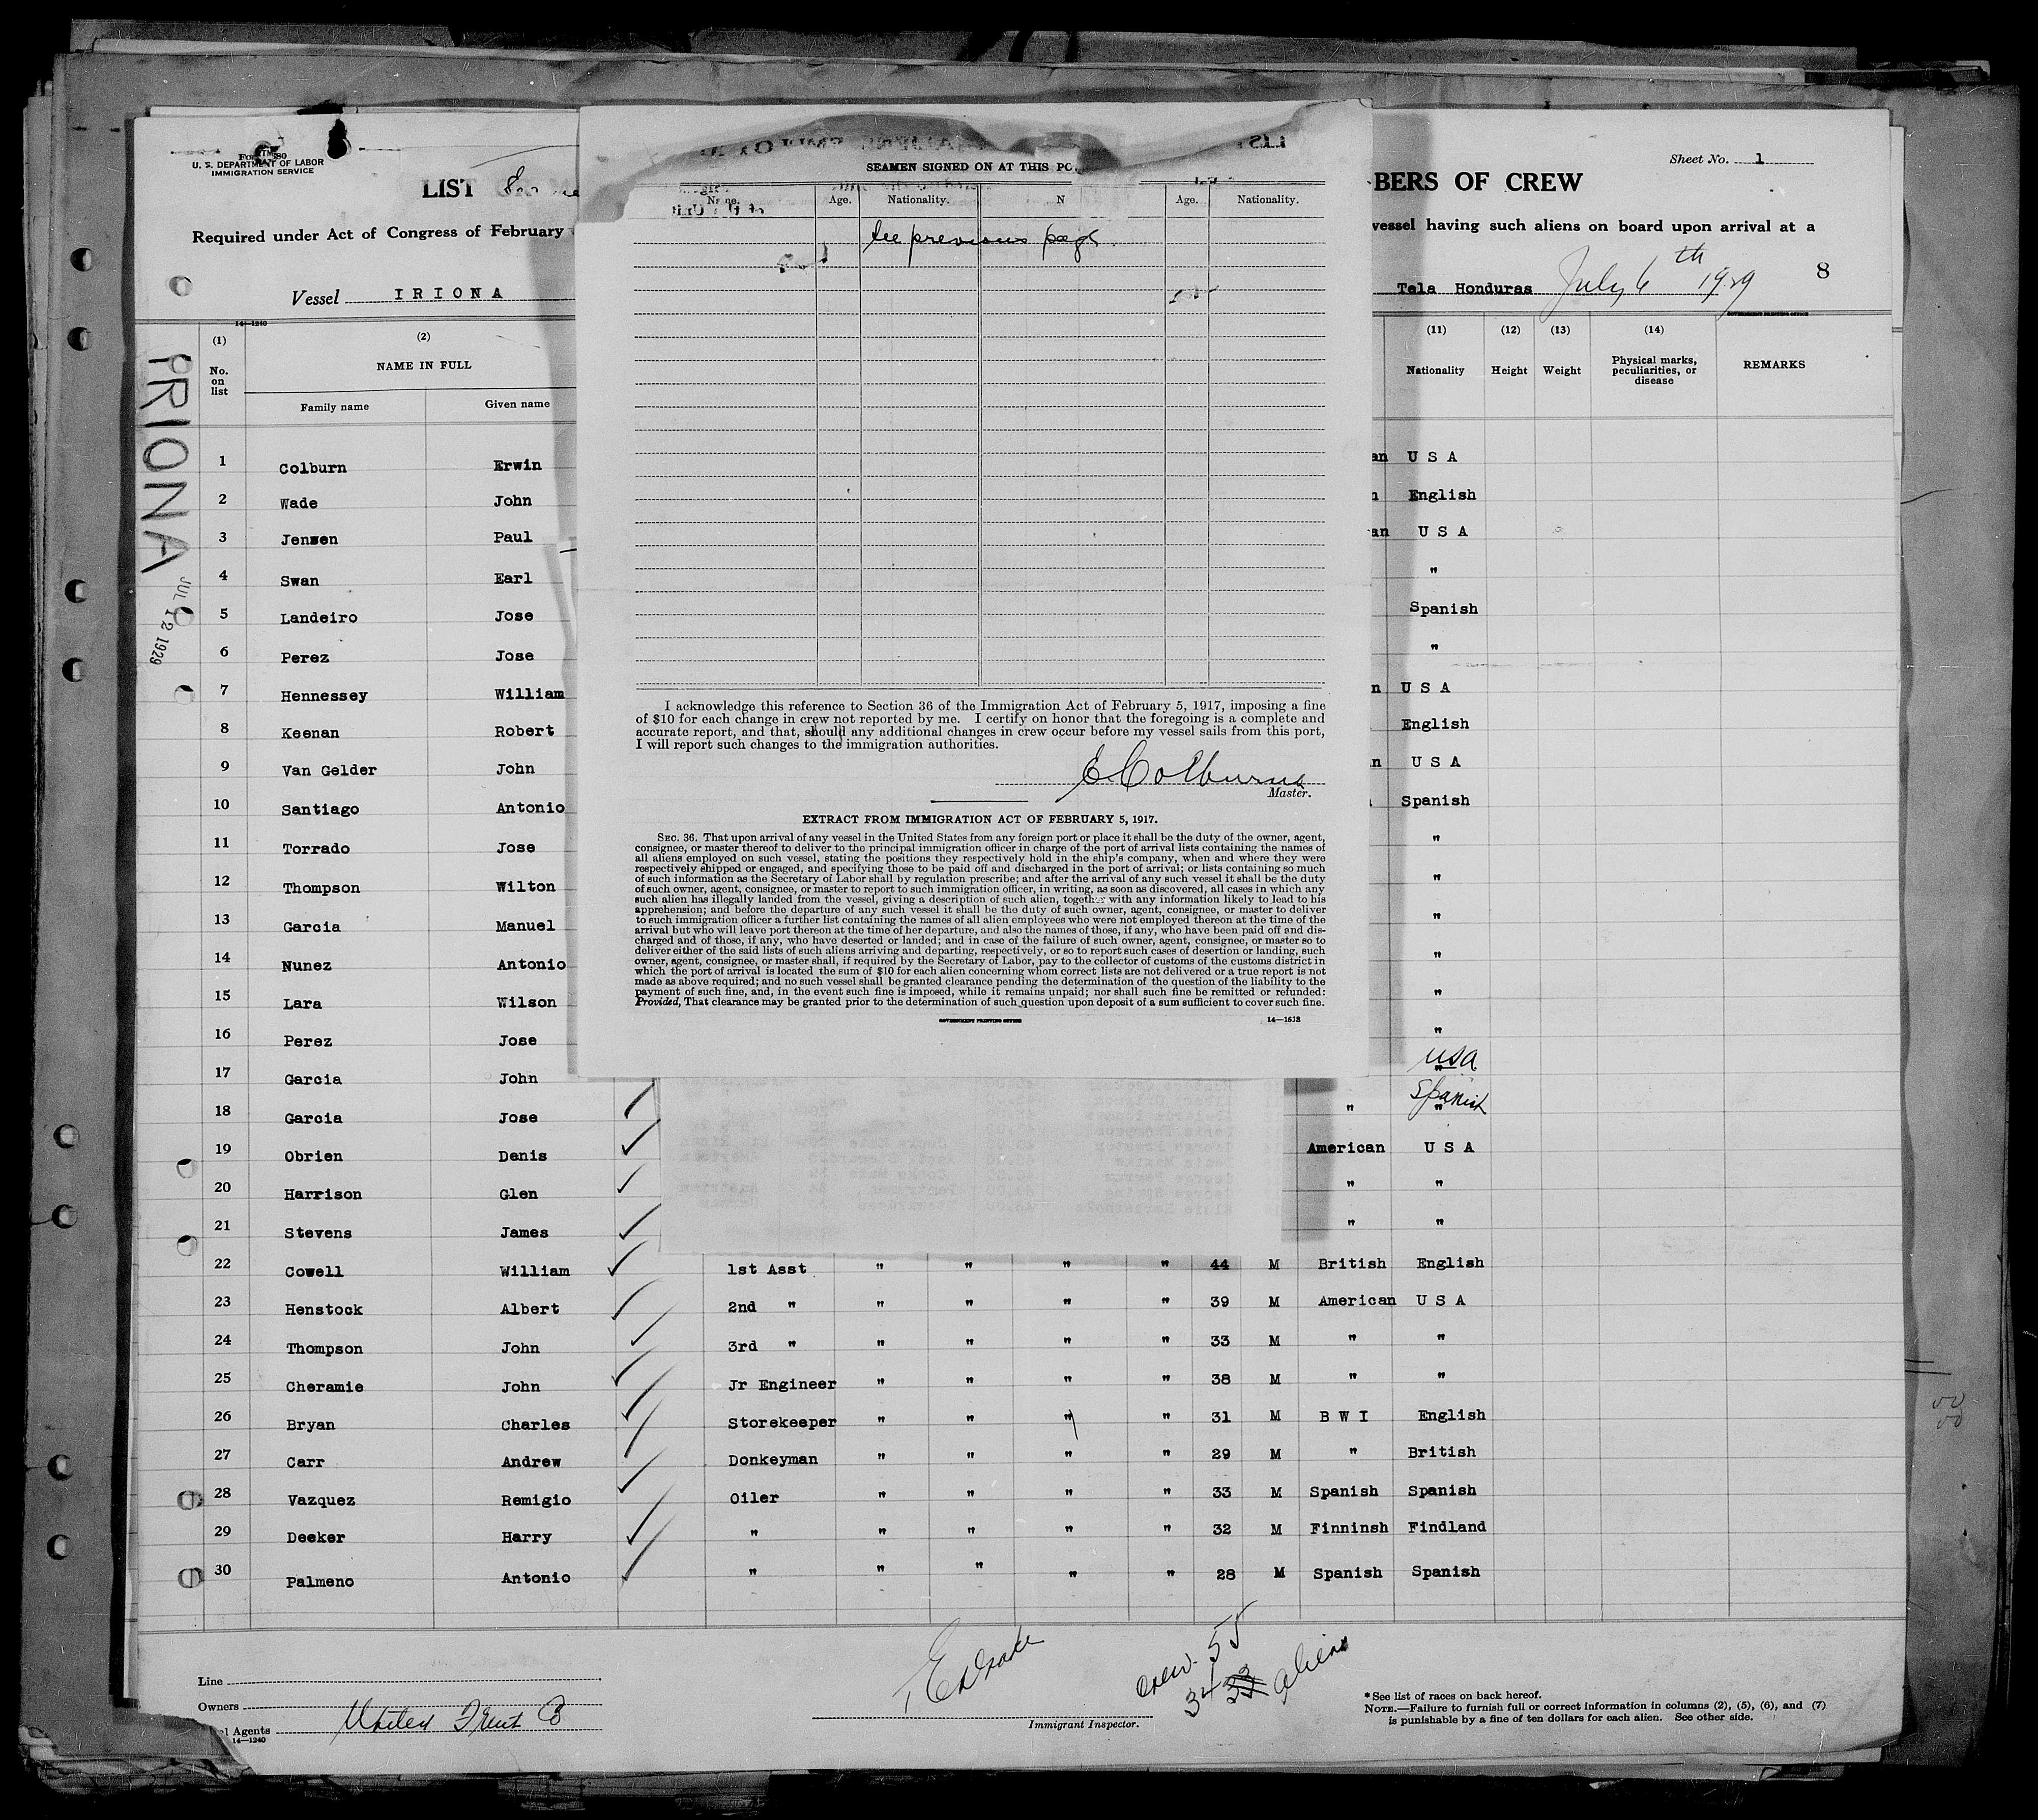 U. S. DEPARTMENT OF LABOR
IMMIGRATION SERVICE
LIST
BERS OF CREW
Sheet No. 1
Required under Act of Congress of February
vessel having such aliens on board upon arrival at a
Vessel IRIONA
Tela Honduras July 6th 1929
8
14-1240
GOVERNMENT PRINTING OFFICE
PRIONA
JUL 12 1929
(1) (2) (11) (12) (13) (14)
No. on list
NAME IN FULL
Family name Given name
Nationality Height Weight Physical marks, peculiarities, or disease REMARKS
1 Colburn Erwin an U S A
2 Wade John English
3 Jensen Paul an U S A
4 Swan Earl "
5 Landeiro Jose Spanish
6 Perez Jose "
7 Hennessey William n U S A
8 Keenan Robert English
9 Van Gelder John n U S A
10 Santiago Antonio Spanish
11 Torrado Jose "
12 Thompson Wilton "
13 Garcia Manuel "
14 Nunez Antonio "
15 Lara Wilson "
16 Perez Jose "
17 Garcia John " usa
18 Garcia Jose " " Spanish
19 Obrien Denis American U S A
20 Harrison Glen " "
21 Stevens James " "
22 Cowell William 1st Asst " " " " 44 M British English
23 Henstock Albert 2nd " " " " " 39 M American U S A
24 Thompson John 3rd " " " " " 33 M " "
25 Cheramie John Jr Engineer " " " " 38 M " "
26 Bryan Charles Storekeeper " " " " 31 M B W I English
27 Carr Andrew Donkeyman " " " " 29 M " British
28 Vazquez Remigio Oiler " " " " 33 M Spanish Spanish
29 Deeker Harry " " " " " 32 M Finninsh Findland
30 Palmeno Antonio " " " " " 28 M Spanish Spanish
SEAMEN SIGNED ON AT THIS PO
Name. Age. Nationality. N Age. Nationality.
See previous page.
I acknowledge this reference to Section 36 of the Immigration Act of February 5, 1917, imposing a fine
of $10 for each change in crew not reported by me. I certify on honor that the foregoing is a complete and
accurate report, and that, should any additional changes in crew occur before my vessel sails from this port,
I will report such changes to the immigration authorities.
E Colburn
Master.
EXTRACT FROM IMMIGRATION ACT OF FEBRUARY 5, 1917.
SEC. 36. That upon arrival of any vessel in the United States from any foreign port or place it shall be the duty of the owner, agent,
consignee, or master thereof to deliver to the principal immigration officer in charge of the port of arrival lists containing the names of
all aliens employed on such vessel, stating the positions they respectively hold in the ship's company, when and where they were
respectively shipped or engaged, and specifying those to be paid off and discharged in the port of arrival; or lists containing so much
of such information as the Secretary of Labor shall by regulation prescribe; and after the arrival of any such vessel it shall be the duty
of such owner, agent, consignee, or master to report to such immigration officer, in writing, as soon as discovered, all cases in which any
such alien has illegally landed from the vessel, giving a description of such alien, together with any information likely to lead to his
apprehension; and before the departure of any such vessel it shall be the duty of such owner, agent, consignee, or master to deliver
to such immigration officer a further list containing the names of all alien employees who were not employed thereon at the time of the
arrival but who will leave port thereon at the time of her departure, and also the names of those, if any, who have been paid off and dis-
charged and of those, if any, who have deserted or landed; and in case of the failure of such owner, agent, consignee, or master so to
deliver either of the said lists of such aliens arriving and departing, respectively, or so to report such cases of desertion or landing, such
owner, agent, consignee, or master shall, if required by the Secretary of Labor, pay to the collector of customs of the customs district in
which the port of arrival is located the sum of $10 for each alien concerning whom correct lists are not delivered or a true report is not
made as above required; and no such vessel shall be granted clearance pending the determination of the question of the liability to the
payment of such fine, and, in the event such fine is imposed, while it remains unpaid; nor shall such fine be remitted or refunded:
Provided, That clearance may be granted prior to the determination of such question upon deposit of a sum sufficient to cover such fine.
GOVERNMENT PRINTING OFFICE 14—1613
Line
Owners
l Agents United Fruit Co
14—1240
Immigrant Inspector.
crew 55
34 aliens
* See list of races on back hereof.
NOTE.—Failure to furnish full or correct information in columns (2), (5), (6), and (7)
is punishable by a fine of ten dollars for each alien. See other side.